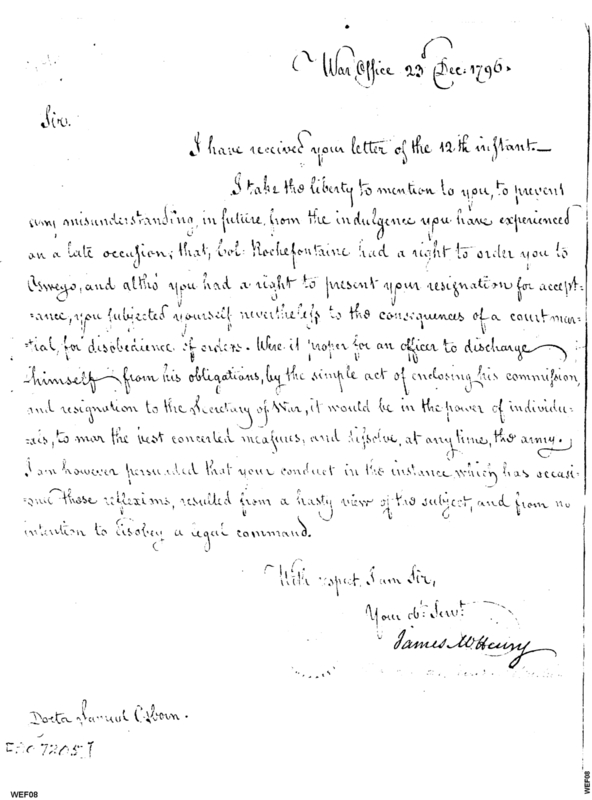 War Office 23d Dec. 1796.
Sir.
I have received your letter of the 12th instant.—
I take the liberty to mention to you, to prevent
any misunderstanding, in future, from the indulgence you have experienced
on a late occasion; that, Col. Rochefontaine had a right to order you to
Oswego, and altho' you had a right to present your resignation for accept-
-ance, you subjected yourself nevertheless to the consequences of a court mar-
-tial, for disobedience of orders. Were it proper for an officer to discharge
himself from his obligations, by the simple act of enclosing his commission,
and resignation to the Secretary of War, it would be in the power of individu-
-als, to mar the best concerted measures, and dissolve, at any time, the army.
I am however persuaded that your conduct in the instance which has occasi-
-oned these reflexions, resulted from a hasty view of the subject, and from no
intention to disobey a legal command.
With respect, I am Sir,
Your obt. Servt.
James McHenry
Doctr Samuel Osborn.
7205
WEF08
WEF08